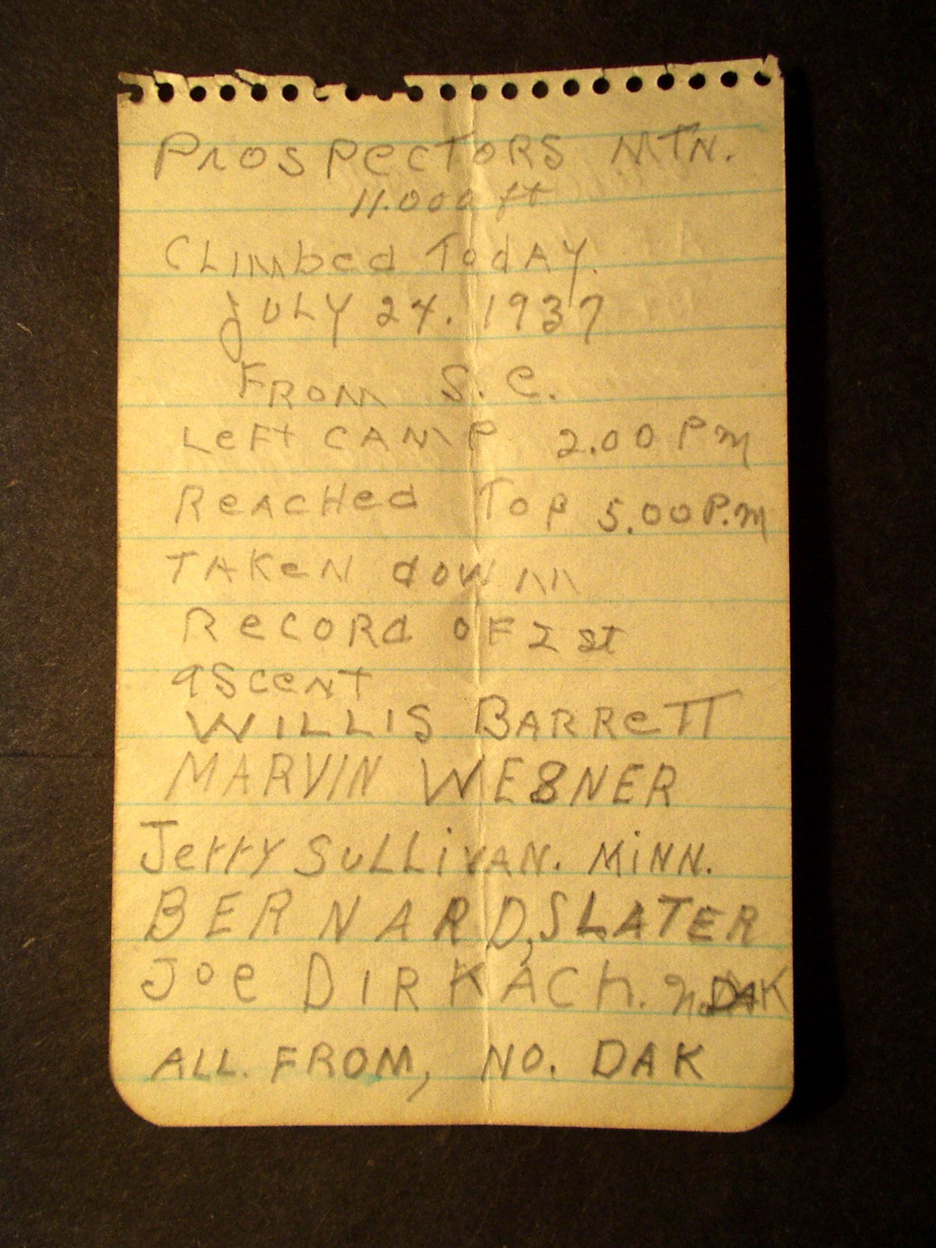 PROSPECTORS MTN.
11.000 ft
CLIMBed TodAY.
JULY 24. 1937
FROM S.C.
LeFt CAMP 2.00 PM
ReACHed Top 5.00 P.M
TAKeN dowN
ReCORd oF I st
aScent
WILLIS BARReTT
MARVIN WEBNER
Jerry SULLiVAN. MiNN.
BERNARD, SLATER
Joe DIRKACh. No DAK
ALL. FROM, NO. DAK